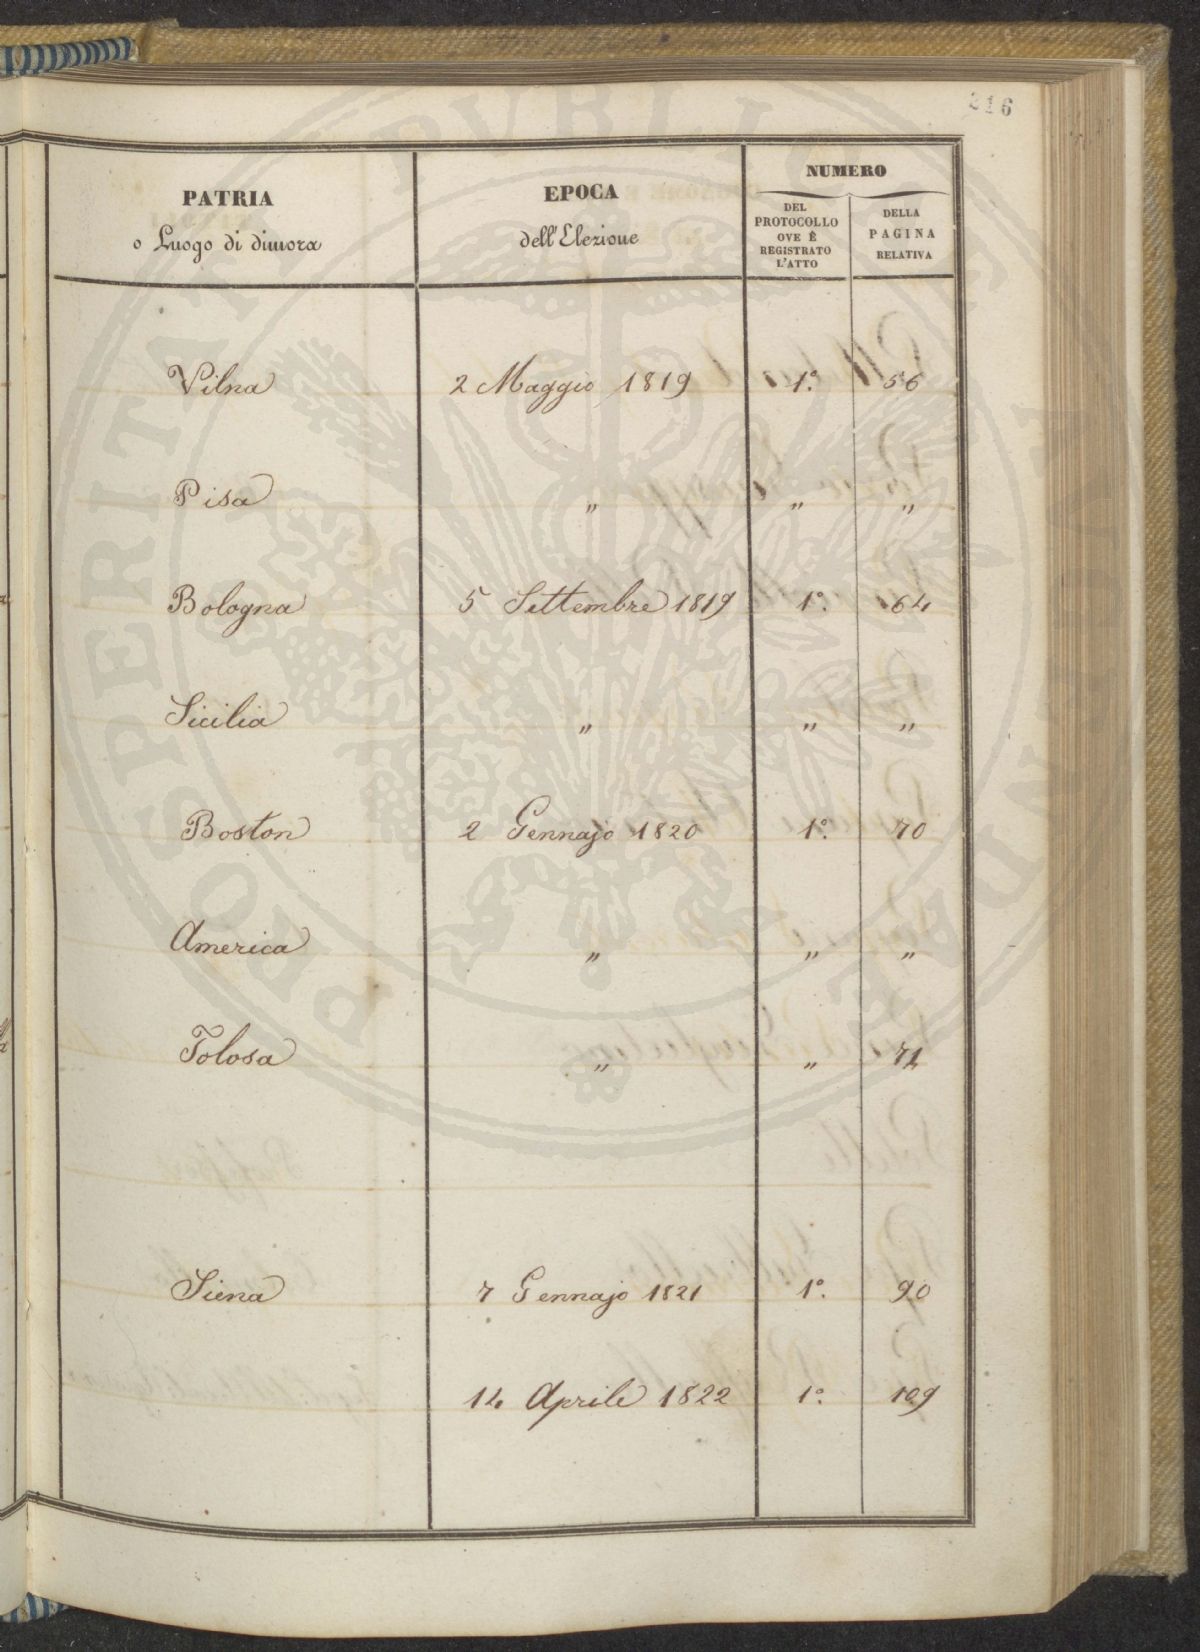 216
PATRIA
o Luogo di dimora
EPOCA
dell'Elezione
NUMERO
DEL
PROTOCOLLO
OVE È
REGISTRATO
L'ATTO
DELLA
PAGINA
RELATIVA
Vilna 2 Maggio 1819 1°. 56
Pisa " " "
Bologna 5 Settembre 1819 1°. 64
Sicilia " " "
Boston 2 Gennajo 1820 1°. 70
America " " "
Tolosa " " 71
Siena 7 Gennajo 1821 1°. 90
14 Aprile 1822 1°. 109
PROSPERITATI PUBLICAE AUGENDAE